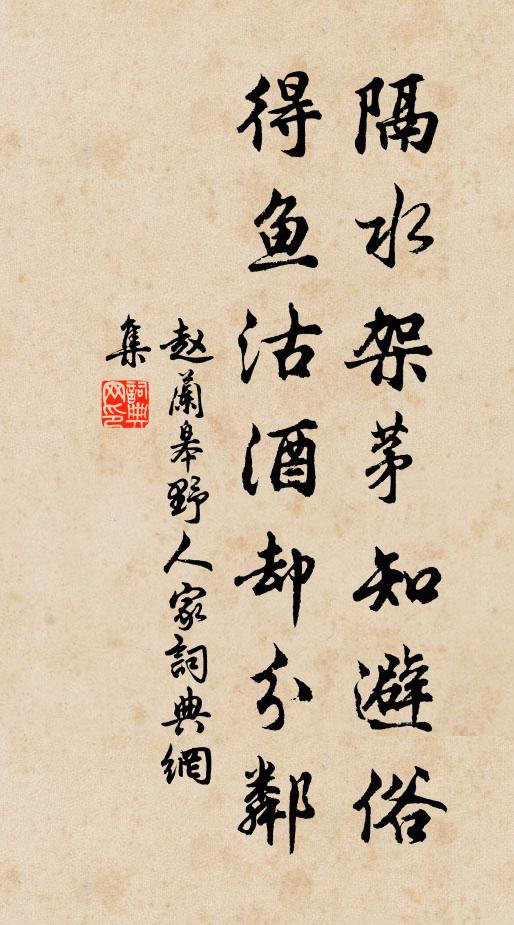 隔水架茅知避俗
得鱼沽酒却分鄰
赵蘭皋野人家詞典網
集
詞典網印